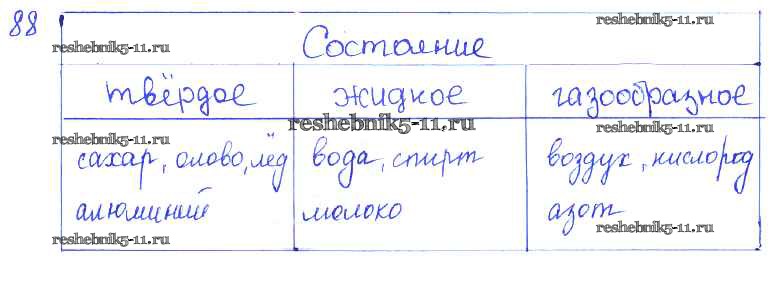 88
reshebnik5-11.ru
reshebnik5-11.ru
Состояние
твёрдое жидкое газообразное
reshebnik5-11.ru
reshebnik5-11.ru
reshebnik5-11.ru
сахар, олово, лёд вода, спирт воздух, кислород
алюминий молоко азот
reshebnik5-11.ru
reshebnik5-11.ru